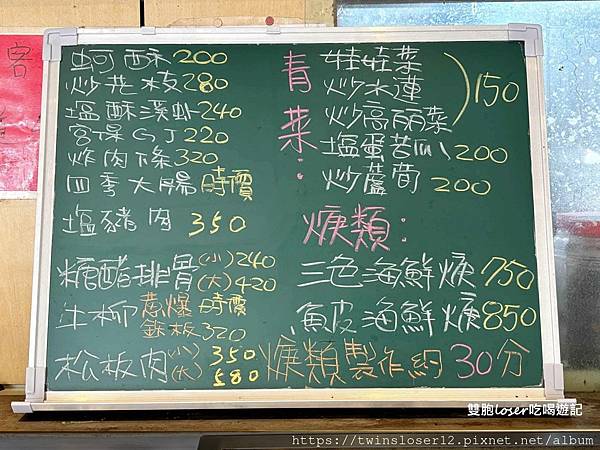 客
蚵酥200
炒花枝280
塩酥溪虾240
宮保GJ220
炸肉條320
四季大腸時價
塩豬肉350
糖醋排骨(小)240
(大)420
牛柳蔥爆時價
鉄板320
松板肉(小)350
(大)580
青菜:
娃娃菜
炒水蓮
炒高丽菜
150
塩蛋苦瓜200
炒蘆筍200
焿類:
三色海鮮焿750
魚皮海鮮焿850
焿類製作約30分
雙胞loser吃喝遊記
https://twinsloser12.pixnet.net/album